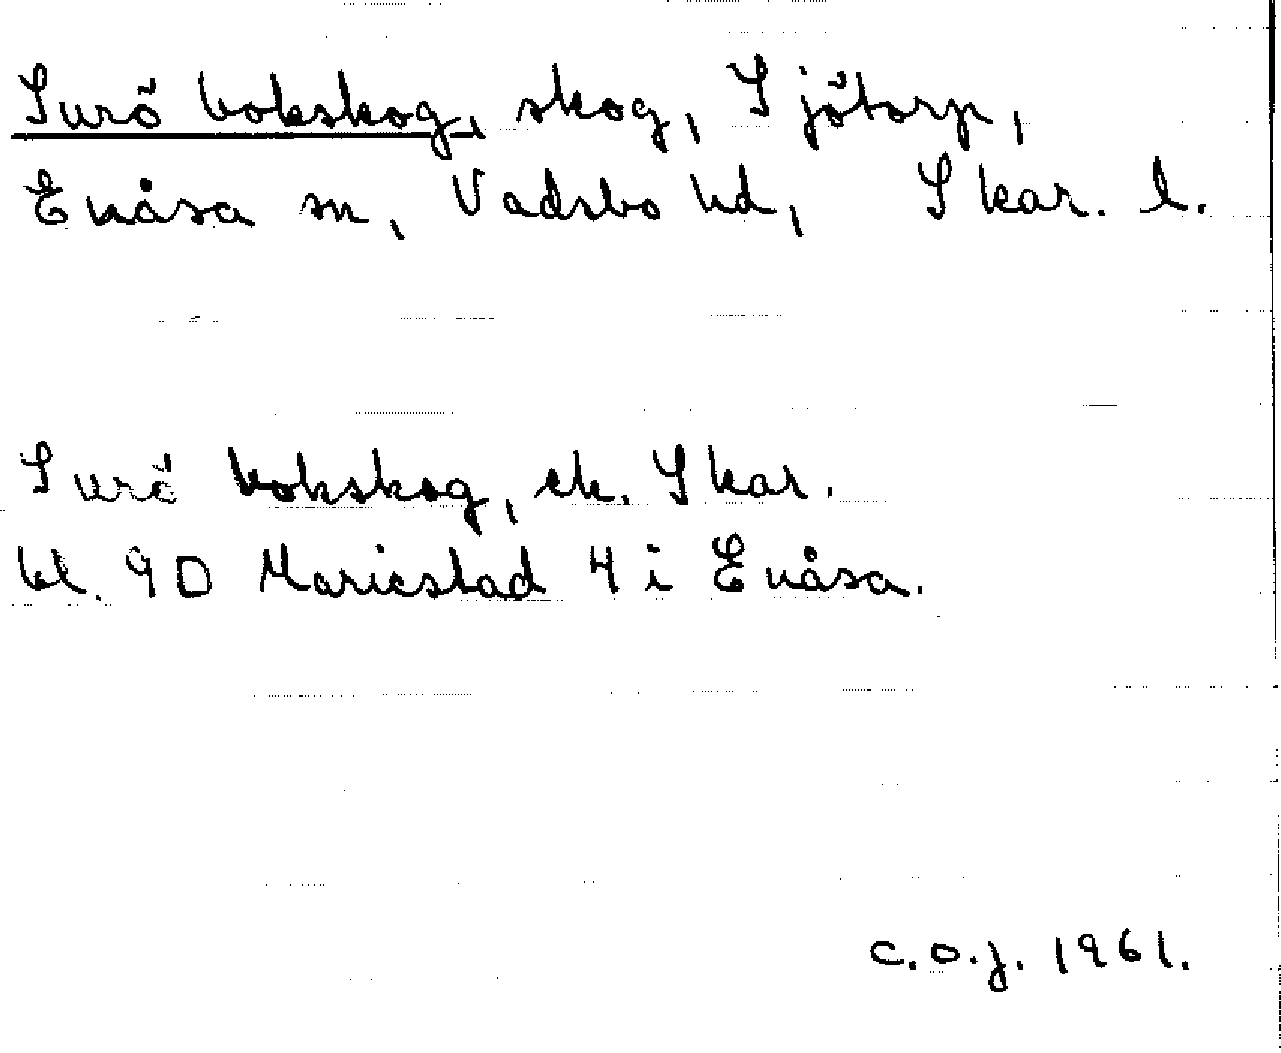 Surö bokskog, skog, Sjötorp,
Enåsa sn, Vadsbo hd, Skar. l.
Surö bokskog, ek. Skar.
bl. 9D Mariestad 4 i Enåsa.
C.O.J. 1961.